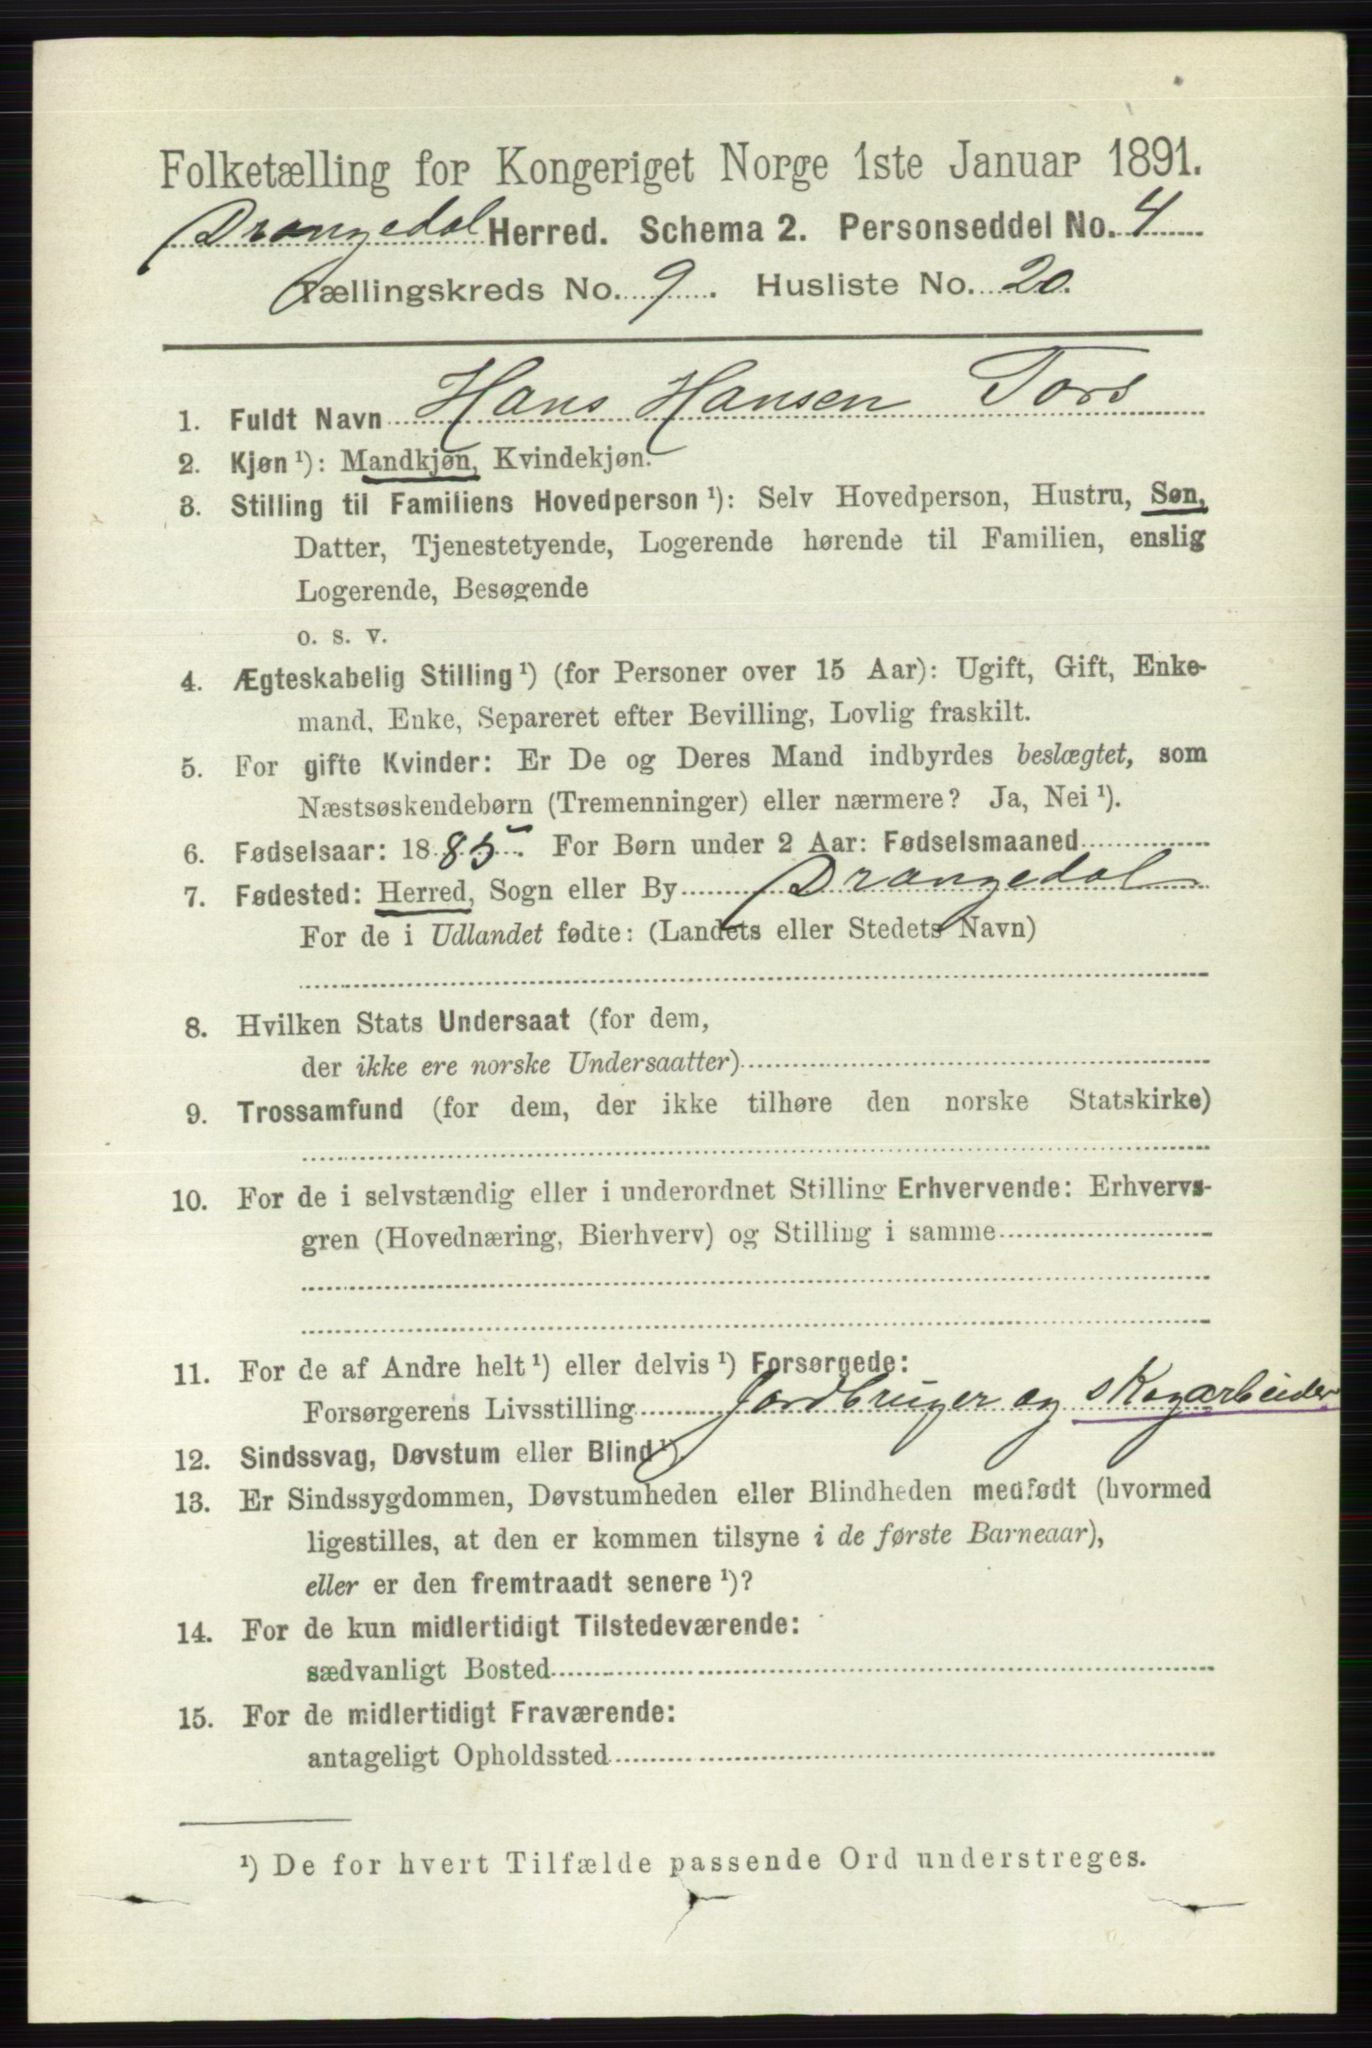 Folketælling for Kongeriget Norge 1ste Januar 1891.
Drangedal Herred. Schema 2. Personseddel No. 4
Tællingskreds No. 9. Husliste No. 20.
1. Fuldt Navn Hans Hansen Tors
2. Kjøn ¹): Mandkjøn, Kvindekjøn.
3. Stilling til Familiens Hovedperson ¹): Selv Hovedperson, Hustru, Søn,
Datter, Tjenestetyende, Logerende hørende til Familien, enslig
Logerende, Besøgende
o. s. v.
4. Ægteskabelig Stilling ¹) (for Personer over 15 Aar): Ugift, Gift, Enke-
mand, Enke, Separeret efter Bevilling, Lovlig fraskilt.
5. For gifte Kvinder: Er De og Deres Mand indbyrdes beslægtet, som
Næstsøskendebørn (Tremenninger) eller nærmere? Ja, Nei ¹).
6. Fødselsaar: 1885. For Børn under 2 Aar: Fødselsmaaned
7. Fødested: Herred, Sogn eller By Drangedal
For de i Udlandet fødte: (Landets eller Stedets Navn)
8. Hvilken Stats Undersaat (for dem,
der ikke ere norske Undersaatter)
9. Trossamfund (for dem, der ikke tilhøre den norske Statskirke)
10. For de i selvstændig eller i underordnet Stilling Erhvervende: Erhvervs-
gren (Hovednæring, Bierhverv) og Stilling i samme
11. For de af Andre helt ¹) eller delvis ¹) Forsørgede:
Forsørgerens Livsstilling Jordbruger og skogarbeider
12. Sindssvag, Døvstum eller Blind ¹).
13. Er Sindssygdommen, Døvstumheden eller Blindheden medfødt (hvormed
ligestilles, at den er kommen tilsyne i de første Barneaar),
eller er den fremtraadt senere ¹)?
14. For de kun midlertidigt Tilstedeværende:
sædvanligt Bosted
15. For de midlertidigt Fraværende:
antageligt Opholdssted
¹) De for hvert Tilfælde passende Ord understreges.